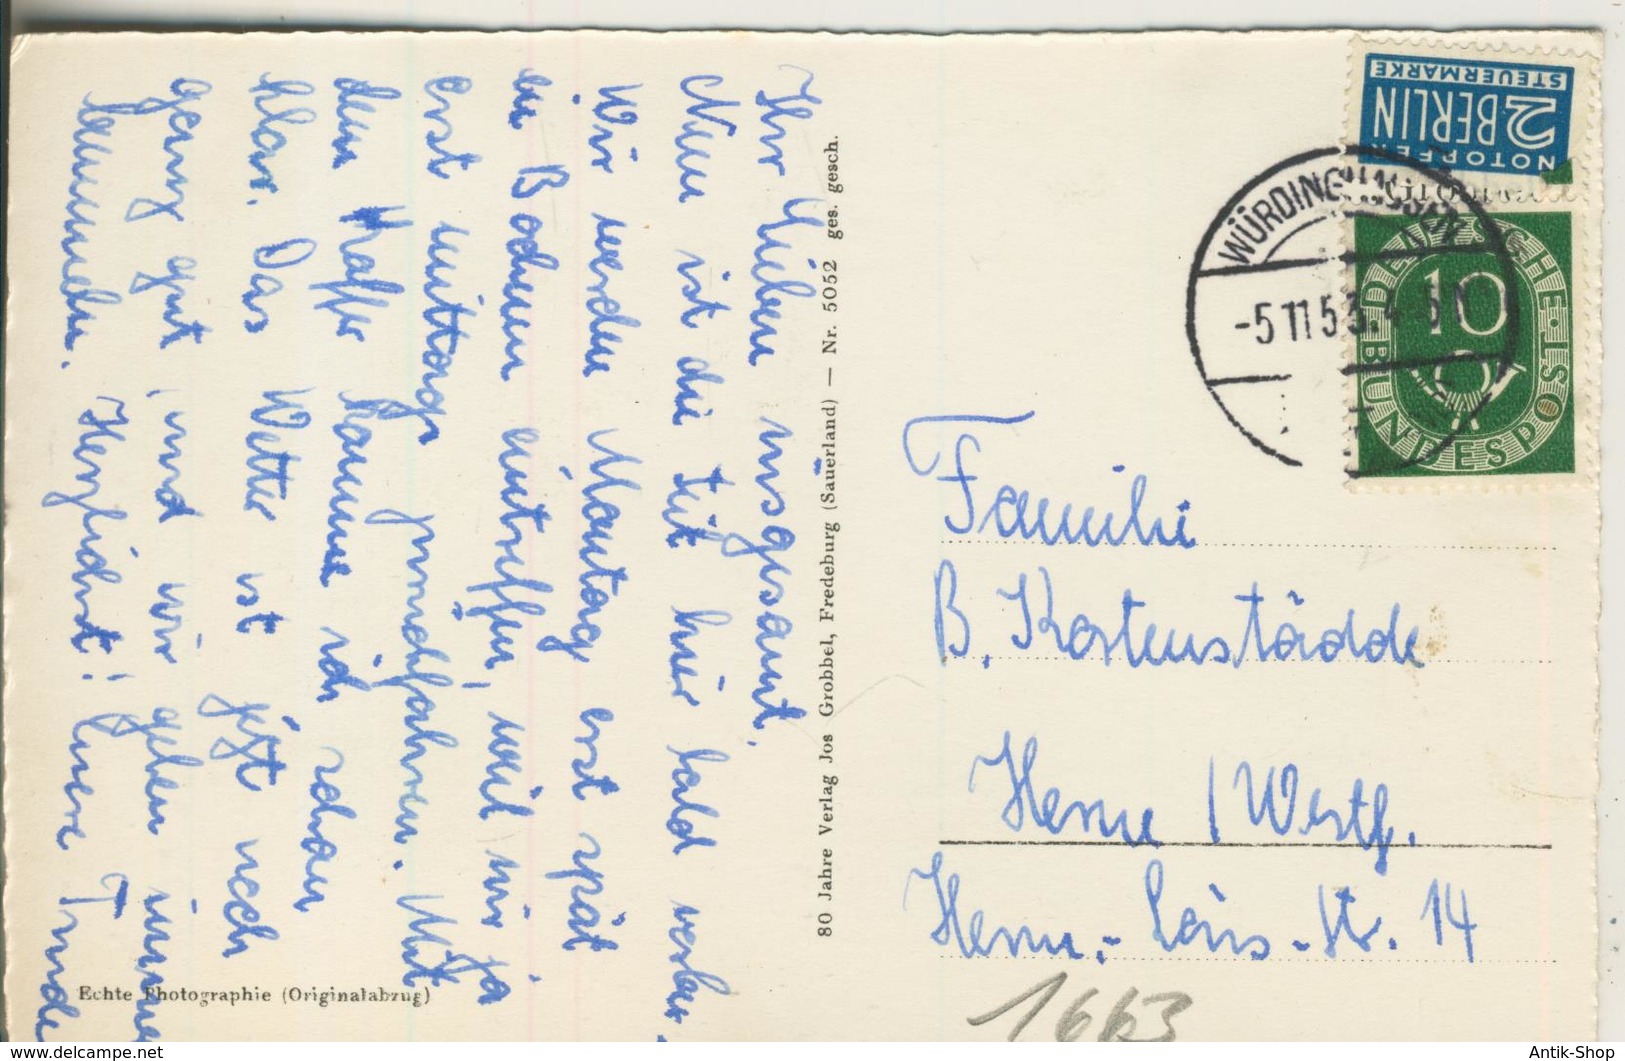 Ihr Lieben insgesamt.
Nun ist die Zeit hier bald
Wir werden Montag erst spät
in Bochum eintreffen, weil wir ja
erst mittags zurückfahren. Mit
dem Koffer komme ich schon
klar. Das Wetter ist jetzt noch
ganz gut, und wir gehen immer
Herzlichst! Eure Trude
80 Jahre Verlag Jos Grobbel, Fredeburg (Sauerland) — Nr. 5052 ges. gesch.
Echte Photographie (Originalabzug)
2 NOTOPFER
BERLIN
STEUERMARKE
DEUTSCHE BUNDESPOST
10
-5.11.53.
Familie
B. Kostenstädde
Herne / Westf.
Herm.-Löns-Str. 14
1663
Antik-Shop
www.delcampe.net